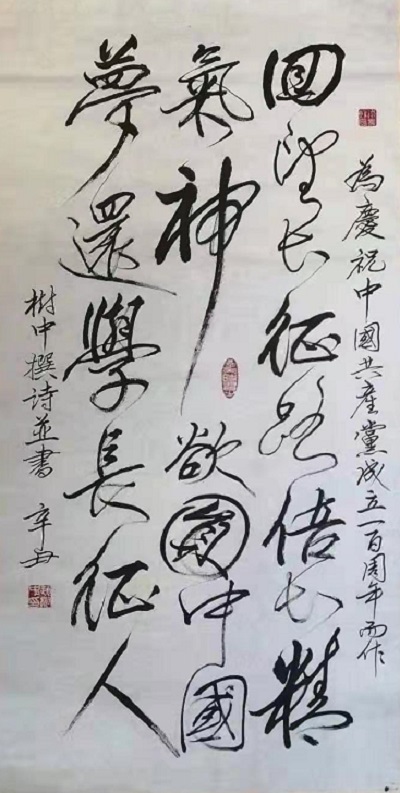 為慶祝中國共產黨成立一百周年而作
回望长征路倍长精
氣神欲圓中國
夢還學長征人
樹中撰詩並書 辛丑